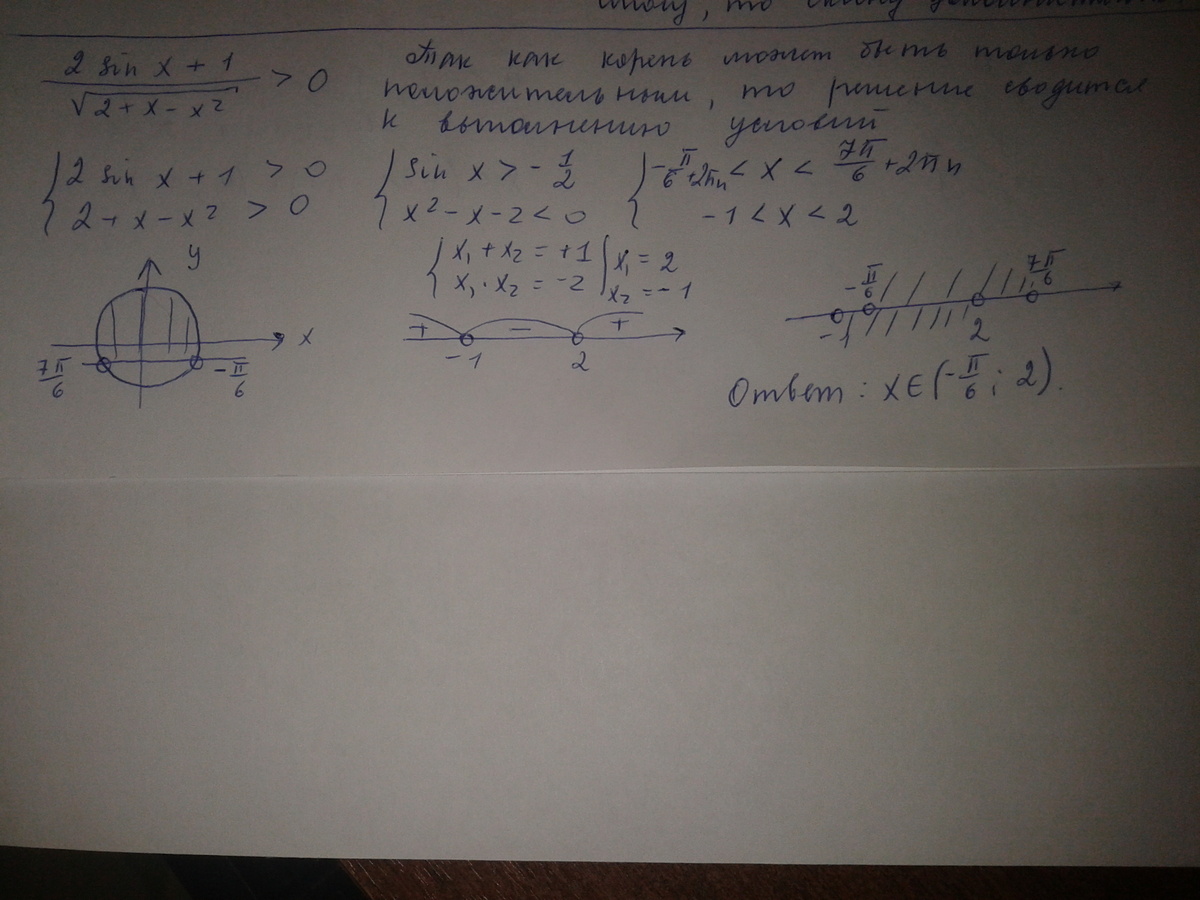 то
(2 sin x + 1)/√(2 + x - x²) > 0
Так как корень может быть только
положительным, то решение сводится
к выполнению условий
{ 2 sin x + 1 > 0
2 + x - x² > 0
{ sin x > - 1/2
x² - x - 2 < 0
{ -π/6 + 2πn < x < 7π/6 + 2πn
-1 < x < 2
{ x₁ + x₂ = +1
x₁ · x₂ = -2
x₁ = 2
x₂ = -1
y
x
7π/6
-π/6
+ - +
-1 2
-π/6 7π/6
-1 2
Ответ: x ∈ (-π/6; 2).